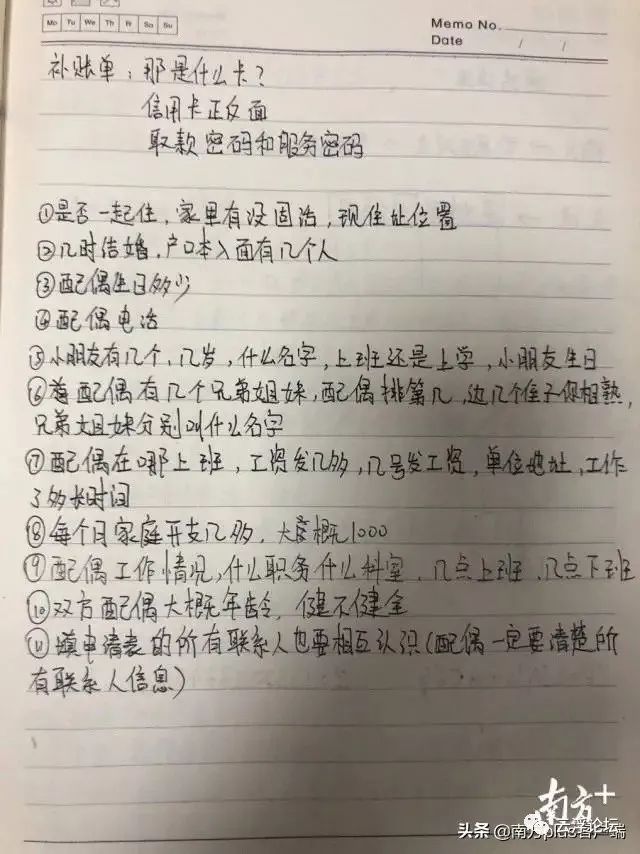 Mo Tu We Th Fr Sa Su
Memo No.
Date / /
补账单：那是什么卡？
信用卡正反面
取款密码和服务密码
①是否一起住，家里有没固话，现住址位置
②几时结婚，户口本入面有几个人
③配偶生日多少
④配偶电话
⑤小朋友有几个，几岁，什么名字，上班还是上学，小朋友生日
⑥配偶有几个兄弟姐妹，配偶排第几，边几个同你相熟，
兄弟姐妹分别叫什么名字
⑦配偶在哪上班，工资发几多，几号发工资，单位地址，工作
了多长时间
⑧每个月家庭开支几多，大概1000
⑨配偶工作情况，什么职务什么科室，几点上班，几点下班
⑩双方配偶大概年龄，健不健全
⑪填申请表的所有联系人也要相互认识（配偶一定要清楚所
有联系人信息）
南方+
头条 @南方plus客户端
论坛